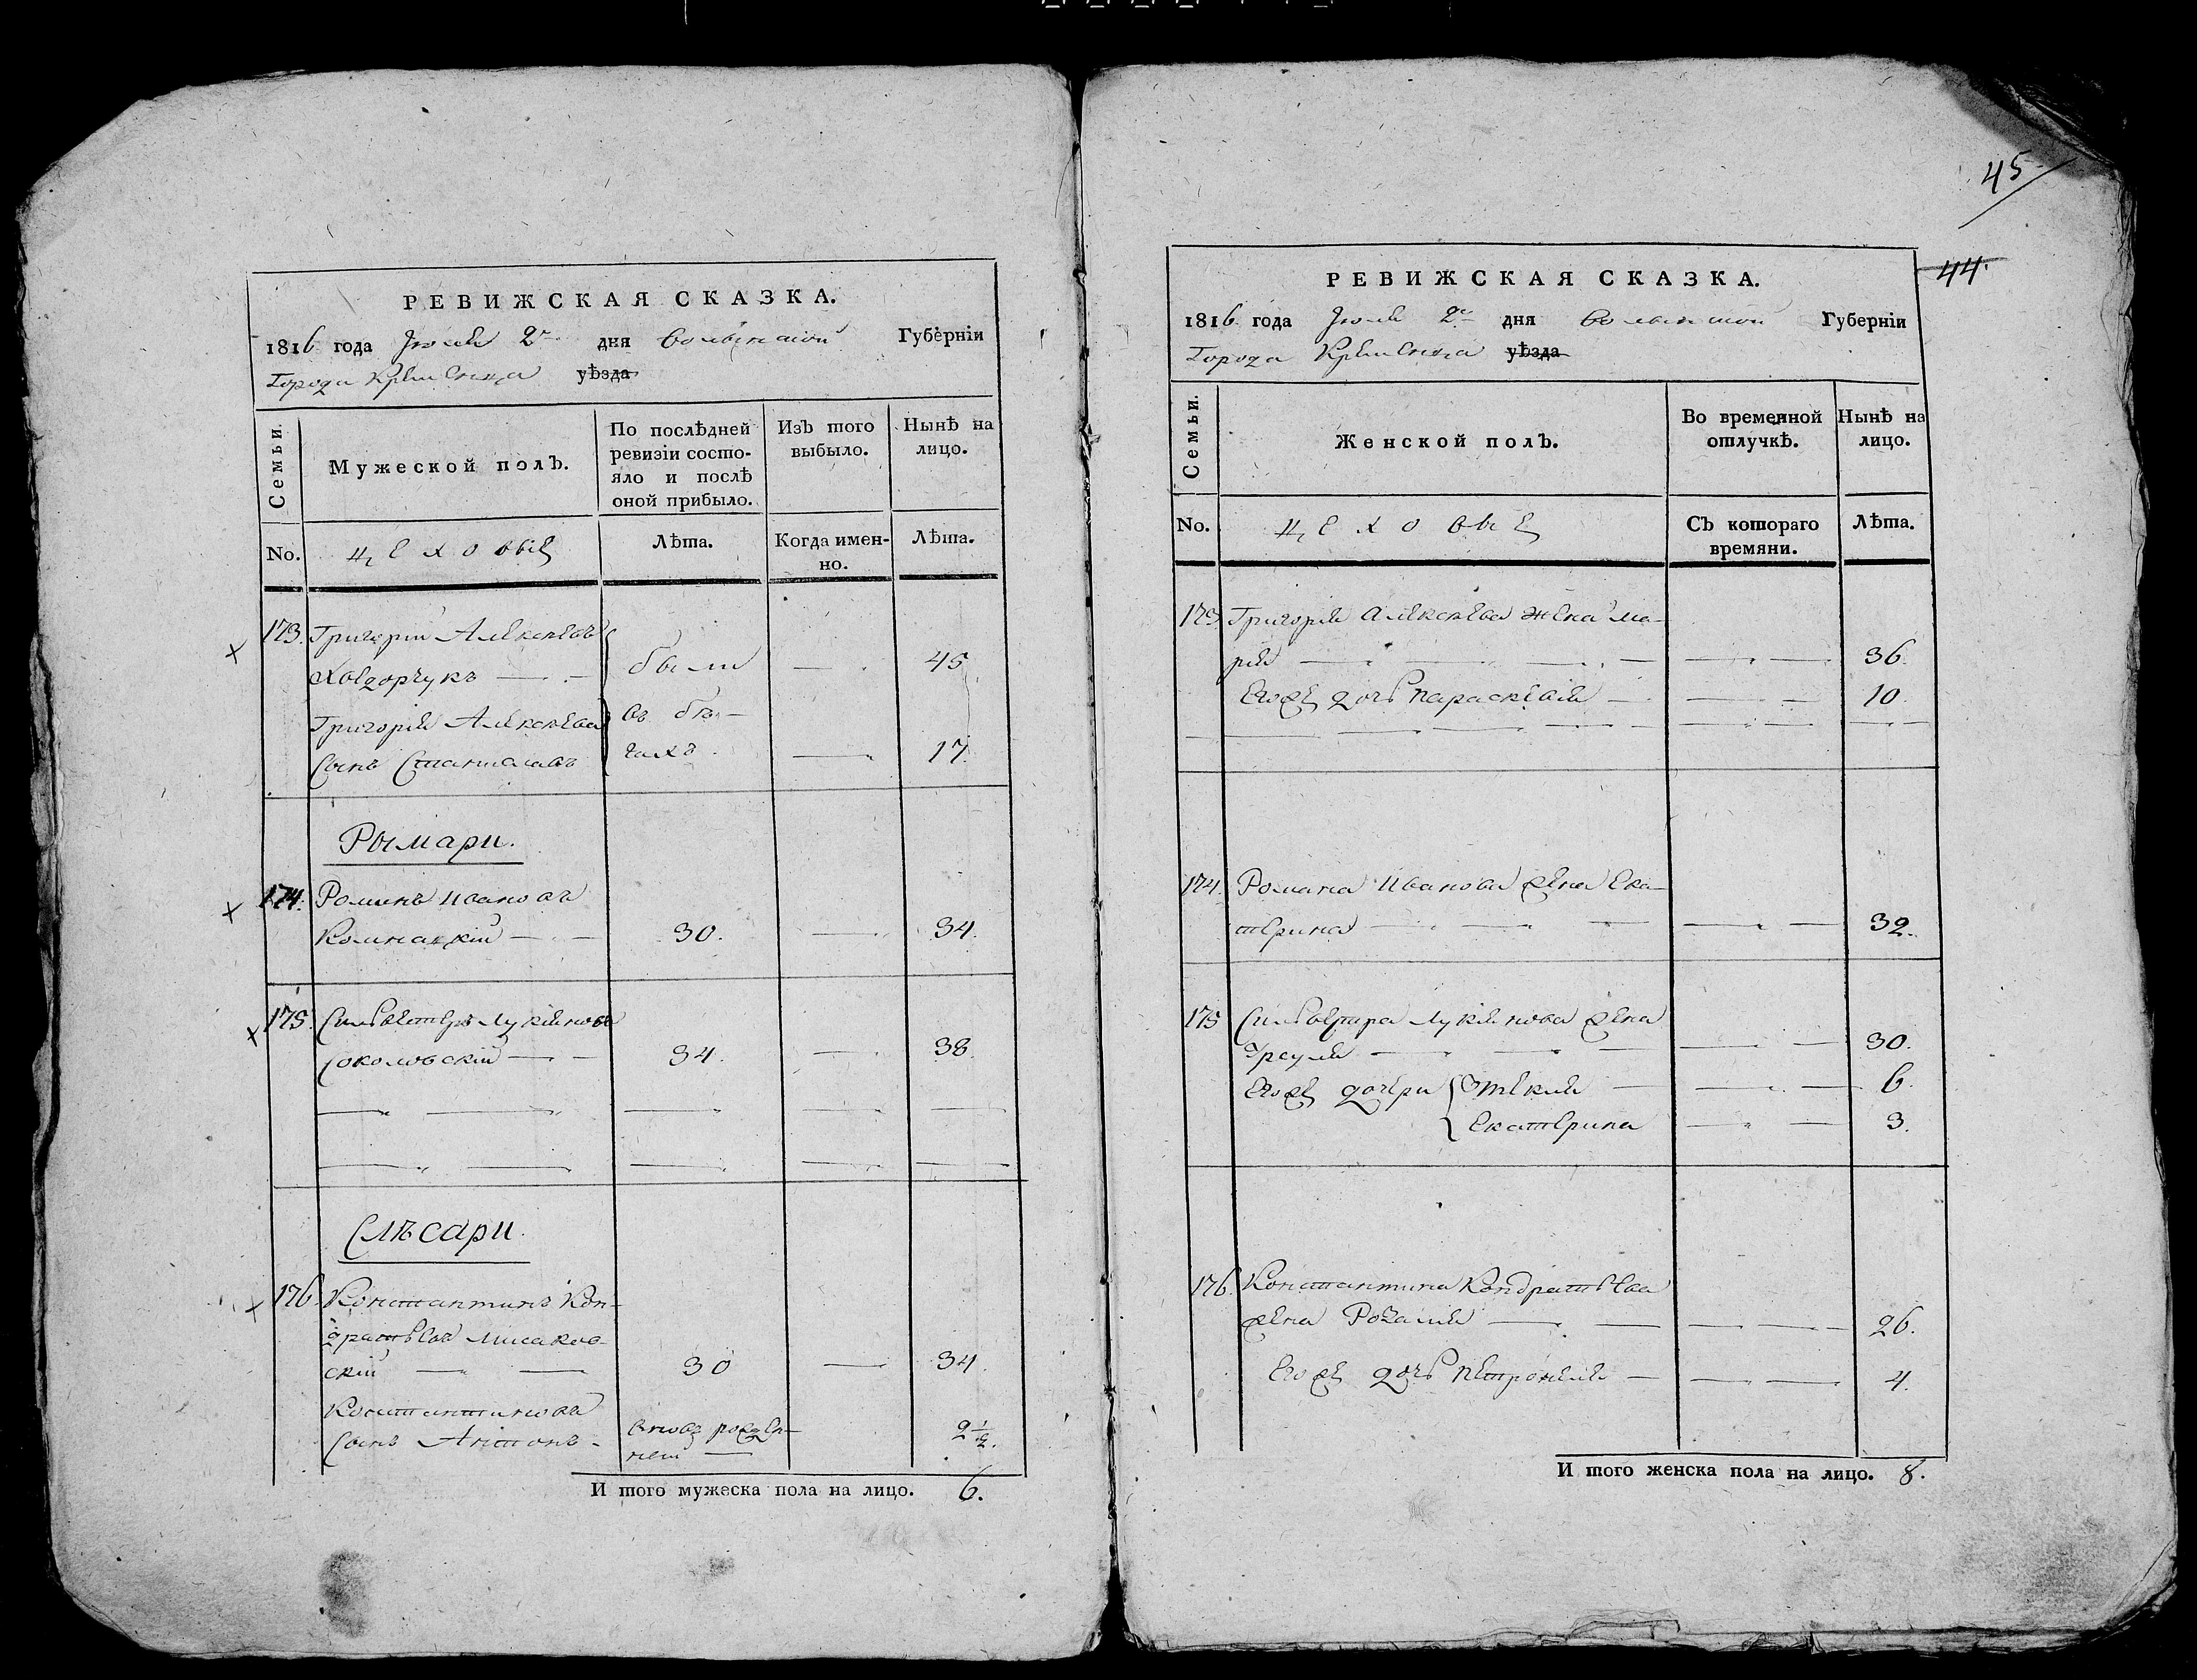 РЕВИЖСКАЯ СКАЗКА.
1816 года Июля 2го дня Волынской Губерніи
Города Кременца уѣзда
Семьи.
Мужеской полъ.
По послѣдней ревизіи состо-
яло и послѣ
оной прибыло.
Изъ того выбыло.
Нынѣ на лицо.
No.
цеховые
Лѣта.
Когда имен-
но.
Лѣта.
173. Григорій Алексѣевъ
были 45
Григорія Алексѣева въ бѣ-
сынъ Станиславъ гахъ 17
Рымари.
174. Романъ Ивановъ
30. 34.
175. Сильвестръ Лукіяновъ
Соколовскій 34. 38.
Слѣсари.
176. Константинъ Кон-
дратьевъ Мисаков-
скій 30 34.
Константиновъ
сынъ Антонъ вновь рожден-
ней 2 1/2.
И того мужеска пола на лицо. 6.
45
44.
РЕВИЖСКАЯ СКАЗКА.
1816 года Июля 2го дня Волынской Губерніи
Города Кременца уѣзда
Семьи.
Женской полъ.
Во временной
отлучкѣ.
Нынѣ на
лицо.
No.
цеховые
Съ котораго
времяни.
Лѣта.
173. Григорія Алексѣева жена Ма-
рія 36.
Егоже дочь Параскевія 10.
174. Романа Иванова жена Ека-
терина 32.
175 Сильвестра Лукіянова жена
Урсуля 30.
Егоже дочери Өтекля 6.
Екатерина 3.
176. Константина Кондратьева
жена Розалія 26.
Егоже дочь Петронеля 4.
И того женска пола на лицо. 8.